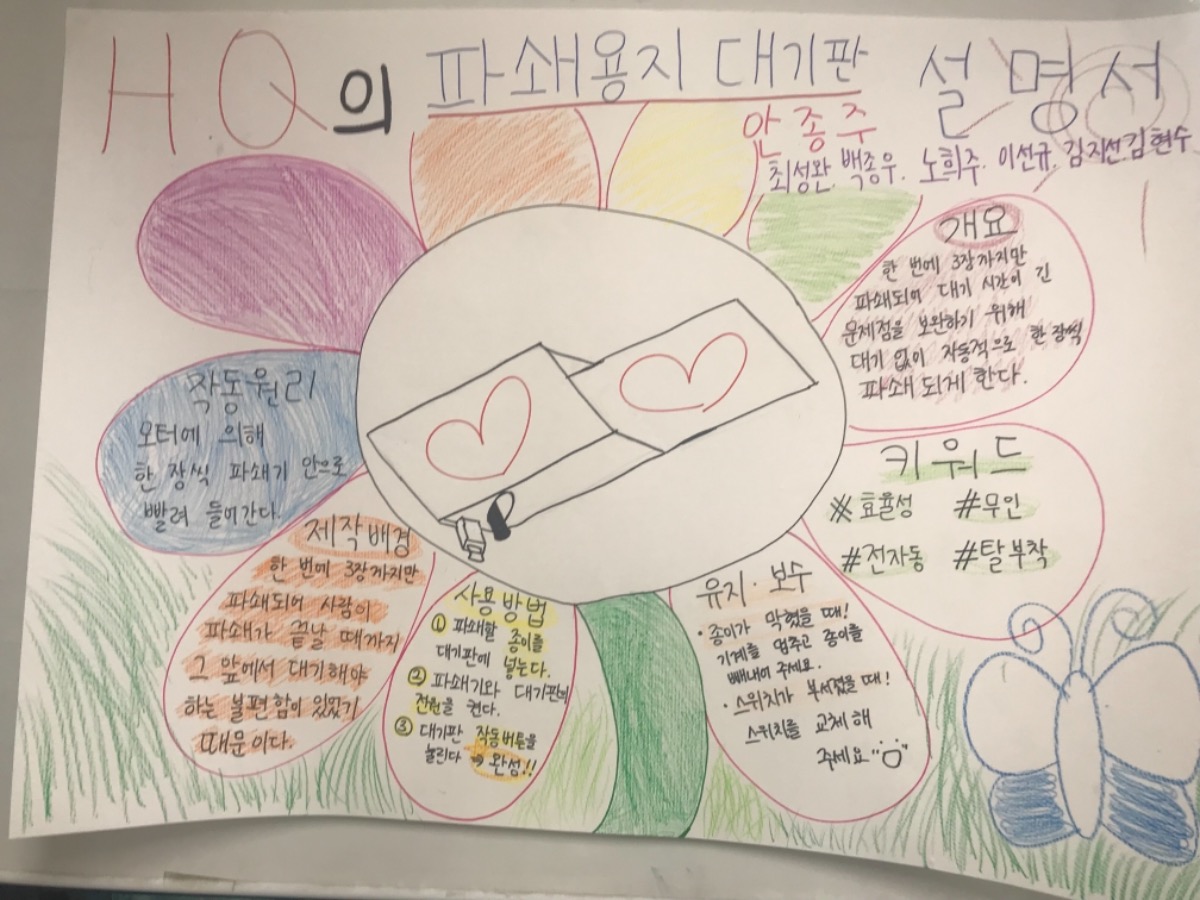 HQ의 파쇄용지 대기판 설명서
안종주
최성완. 백종우. 노희주. 이선규. 김지선. 김현수
개요
한 번에 3장까지만
파쇄되어 대기 시간이 긴
문제점을 보완하기 위해
대기 없이 자동적으로 한 장씩
파쇄 되게 한다.
키워드
※효율성 #무인
#전자동 #탈부착
유지·보수
·종이가 막혔을 때!
기계를 멈추고 종이를
빼내어 주세요.
·스위치가 부서졌을 때!
스위치를 교체 해
주세요
사용방법
① 파쇄할 종이를
대기판에 넣는다.
② 파쇄기와 대기판의
전원을 켠다.
③ 대기판 작동버튼을
눌린다 → 완성!!
제작배경
한 번에 3장까지만
파쇄되어 사람이
파쇄가 끝날 때까지
그 앞에서 대기해야
하는 불편함이 있었기
때문이다.
작동원리
모터에 의해
한 장씩 파쇄기 안으로
빨려 들어간다.